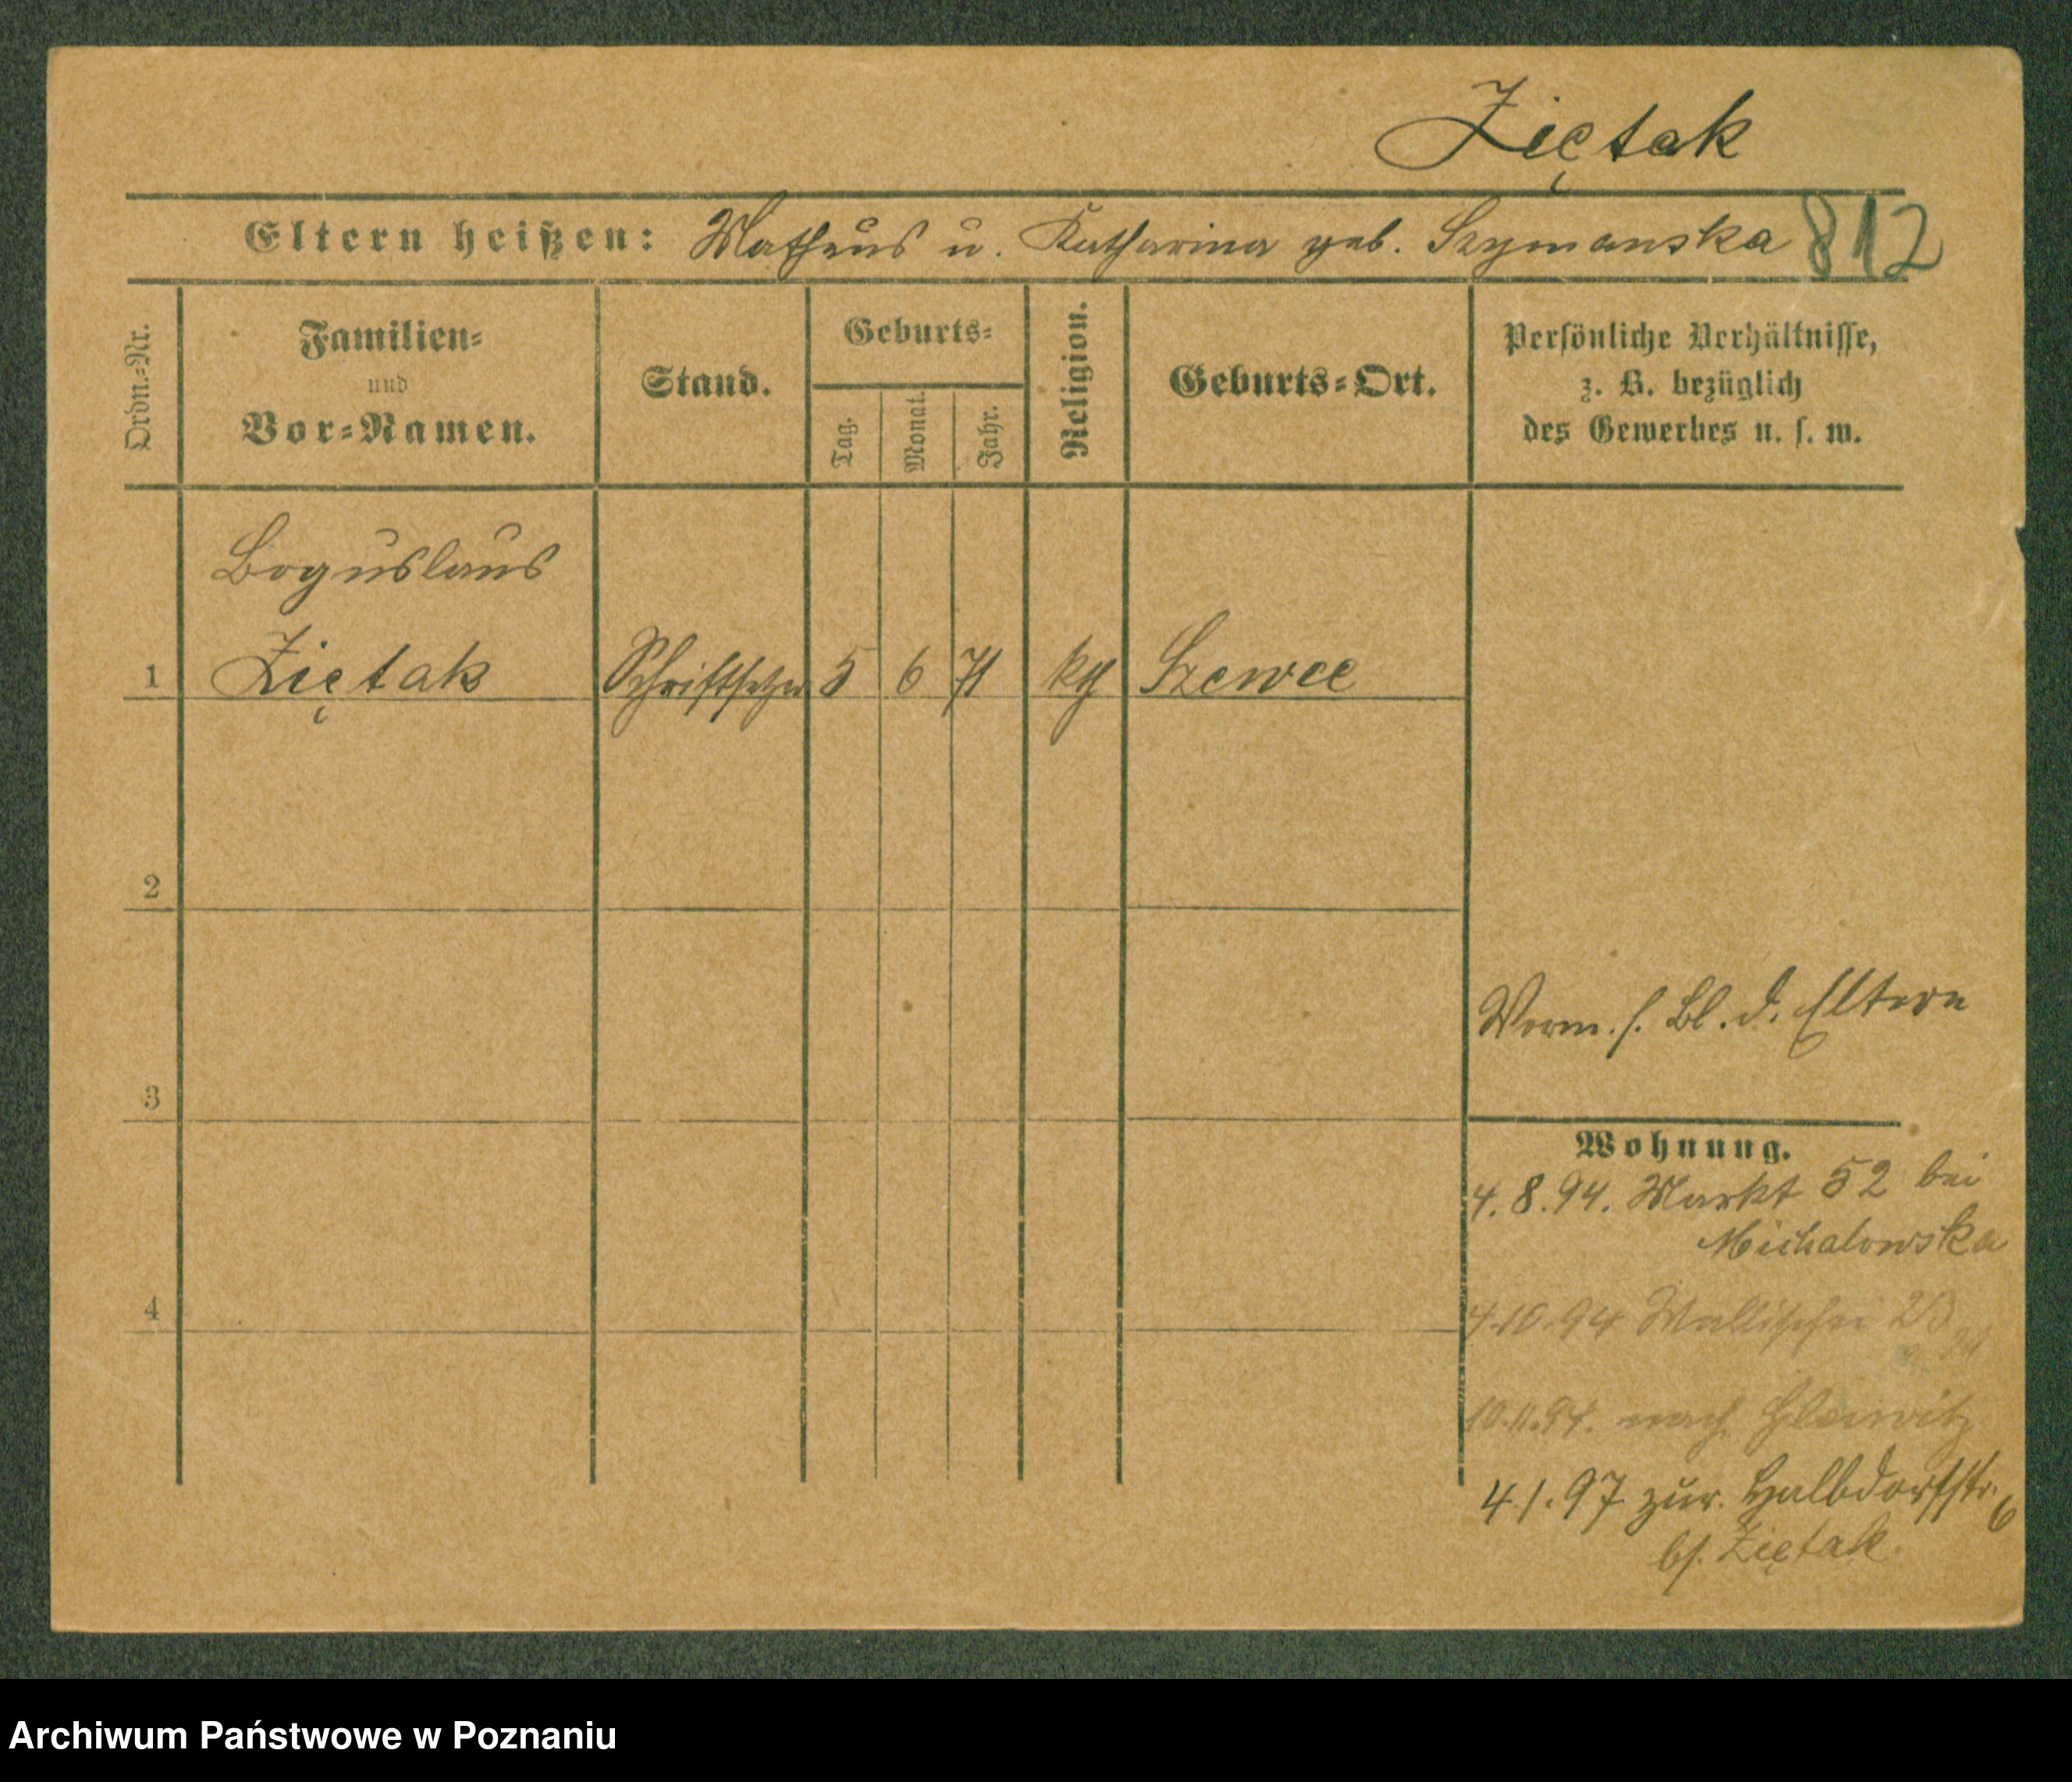 Ziętak
Eltern heißen: Matheus u. Katharina geb. Szymanska 812
Ordn.-Nr.
Familien-
und
Vor-Namen.
Stand.
Geburts-
Tag.
Monat.
Jahr.
Religion.
Geburts-Ort.
Persönliche Verhältnisse,
z. B. bezüglich
des Gewerbes u. s. w.
Boguslaus
1 Ziętak Schriftsetzer 5 6 71 kg Szewce
2
3
4
Vorm. s. Bl. d. Eltern
Wohnung.
4.8.94. Markt 52 bei
Michalowska
4.10.94 Wallischei
10.11.94. nach Gleiwitz
4/1.97 zur. Halbdorfstr. 6
bs. Ziętak.
Archiwum Państwowe w Poznaniu